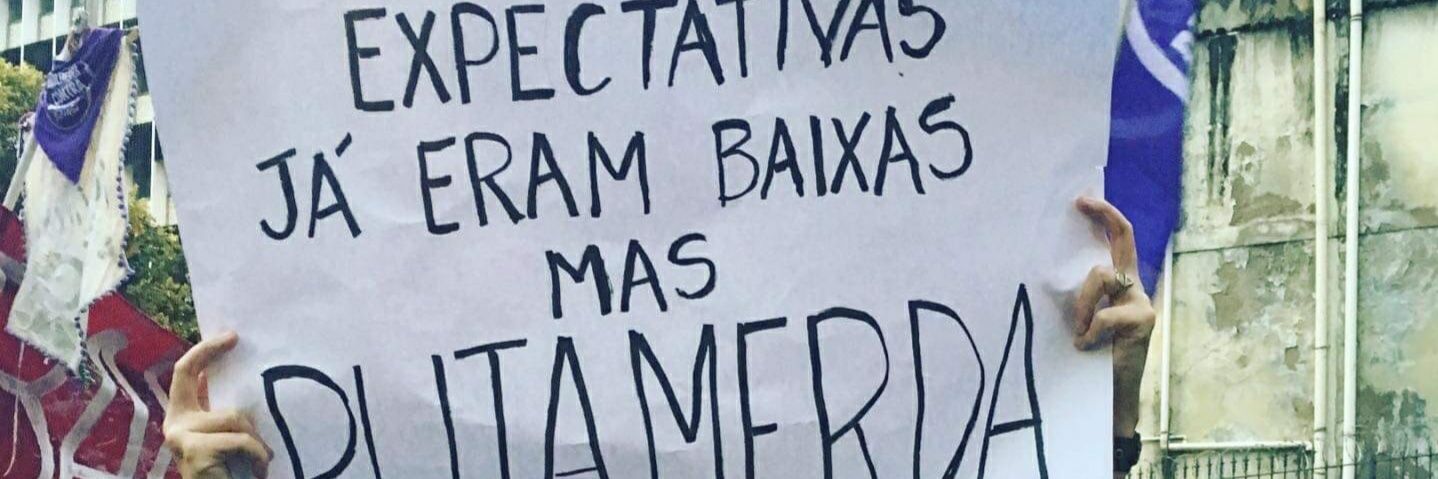 EXPECTATIVAS
JÁ ERAM BAIXAS
MAS
PUTAMERDA
CONTRA